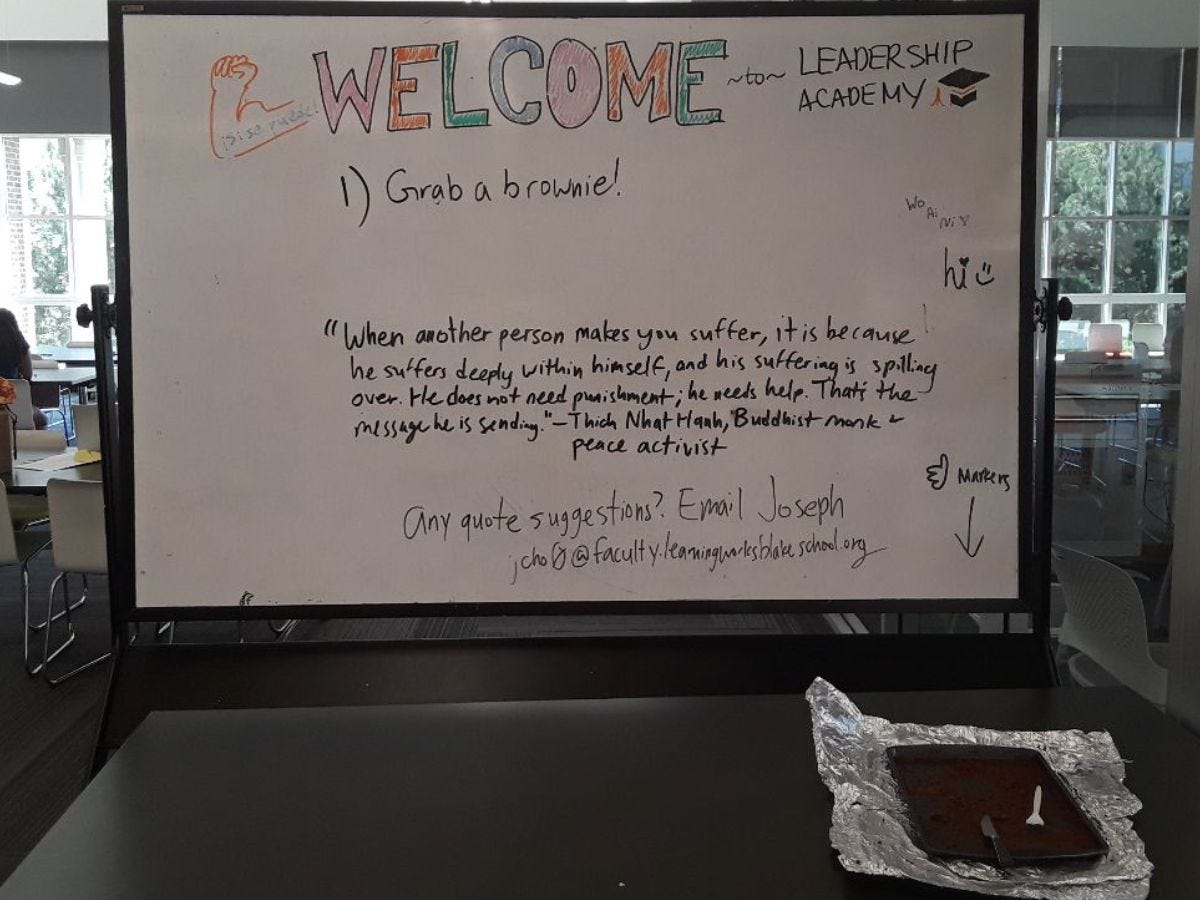 WELCOME ~to~ LEADERSHIP
ACADEMY
¡Si se puede!
1) Grab a brownie!
Wo
Ai
Ni
hi
"When another person makes you suffer, it is because
he suffers deeply within himself, and his suffering is spilling
over. He does not need punishment; he needs help. That's the
message he is sending." - Thich Nhat Hanh, Buddhist monk &
peace activist
Markers
Any quote suggestions? Email Joseph
jcho0@faculty.learningworksblakeschool.org